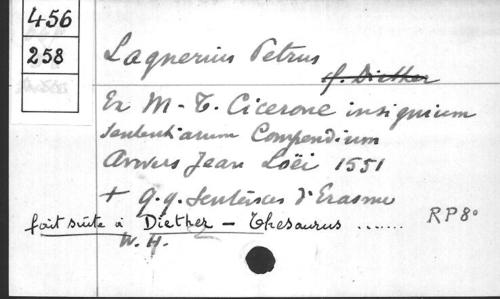 456
258
Lagnerius Petrus
f. Diether
Ex M-T. Cicerone insignium
Sententiarum Compendium
Anvers Jean Loëi 1551
+ q.q. Sentences d'Erasme
fait suite à Diether - Thesaurus .......
RP8°
W.H.